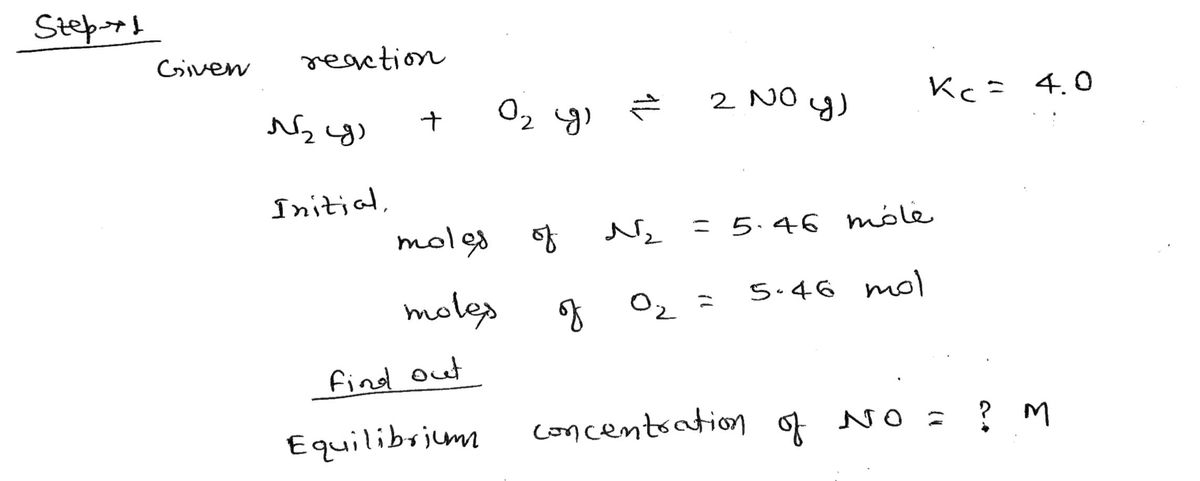 Step→1
Given reaction
N₂ (g) + O₂ (g) ⇌ 2 NO (g) Kc = 4.0
Initial,
moles of N₂ = 5.46 mole
moles of O₂ = 5.46 mol
find out
Equilibrium concentration of NO = ? M